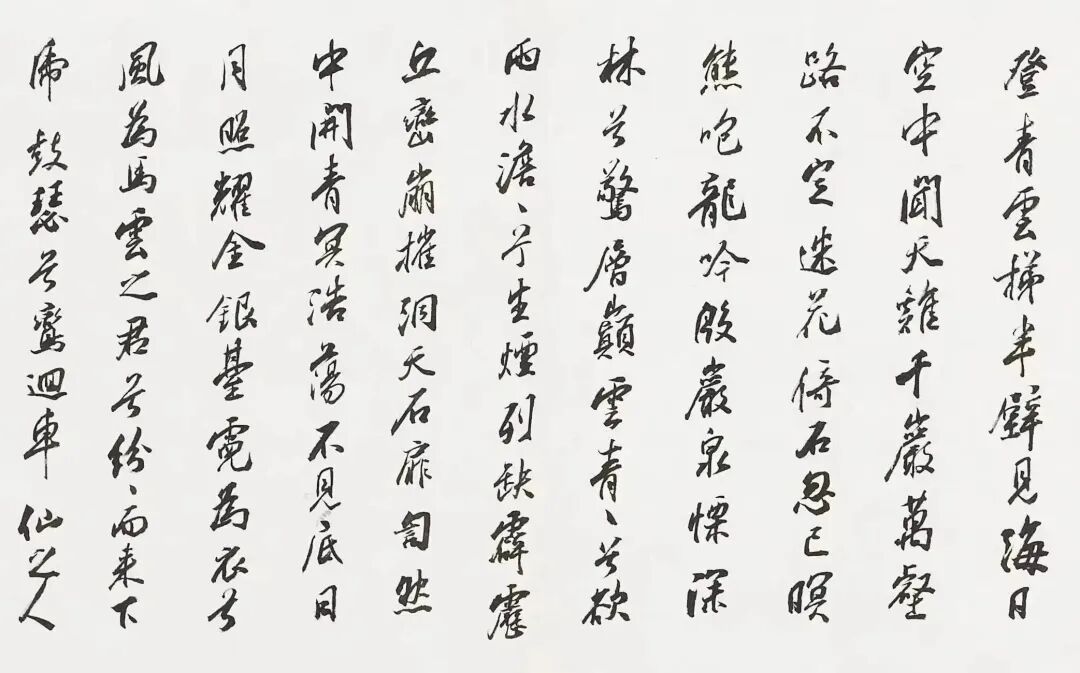 登青雲梯半壁見海日
空中聞天雞千巖萬壑
路不定迷花倚石忽已暝
熊咆龍吟殷巖泉慄深
林兮驚層巔雲青〻兮欲
雨水澹〻兮生煙列缺霹靂
丘巒崩摧洞天石扉訇然
中開青冥浩蕩不見底日
月照耀金銀臺霓為衣兮
風為馬雲之君兮紛〻而来下
虎鼓瑟兮鸞迴車仙之人